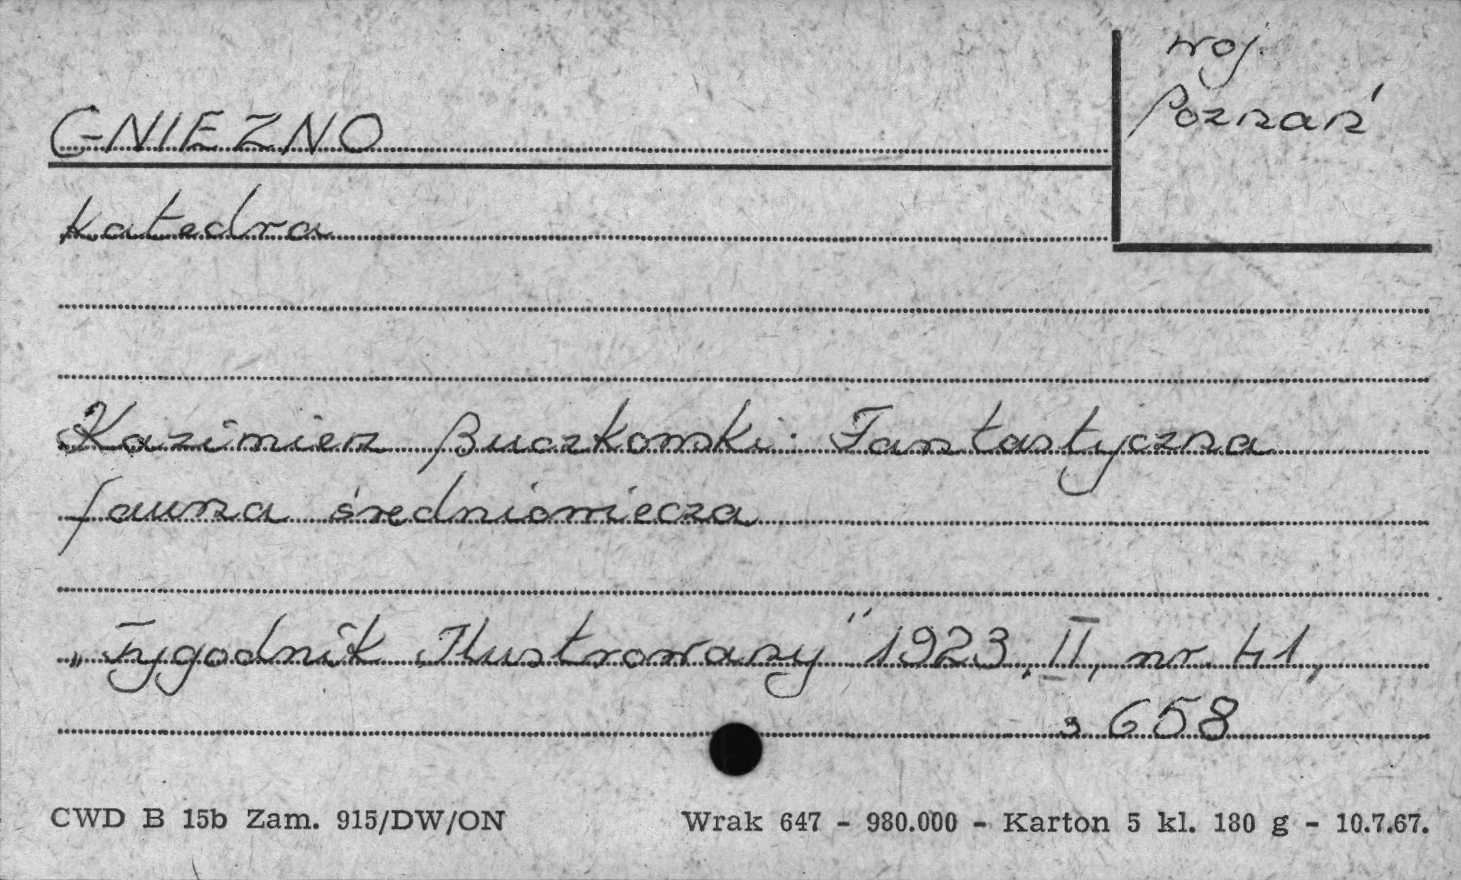 woj.
Poznań
GNIEZNO
katedra
Kazimierz Buczkowski: Fantastyczna
fauna średniowiecza
„Tygodnik Ilustrowany" 1923, II, nr. 41,
s 658
CWD B 15b Zam. 915/DW/ON Wrak 647 - 980.000 - Karton 5 kl. 180 g - 10.7.67.